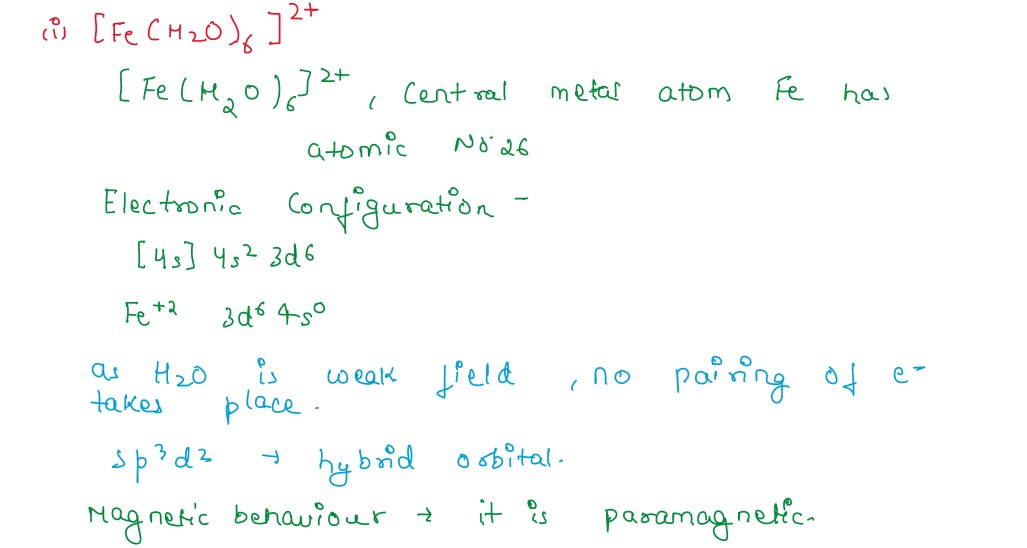 (i) [Fe(H2O)6]2+
[Fe(H2O)6]2+, Central metal atom Fe has
atomic No. 26
Electronic Configuration -
[4s] 4s2 3d6
Fe+2 3d6 4s0
as H2O is weak field, no pairing of e-
takes place.
sp3d2 → hybrid orbital.
Magnetic behaviour → it is paramagnetic.